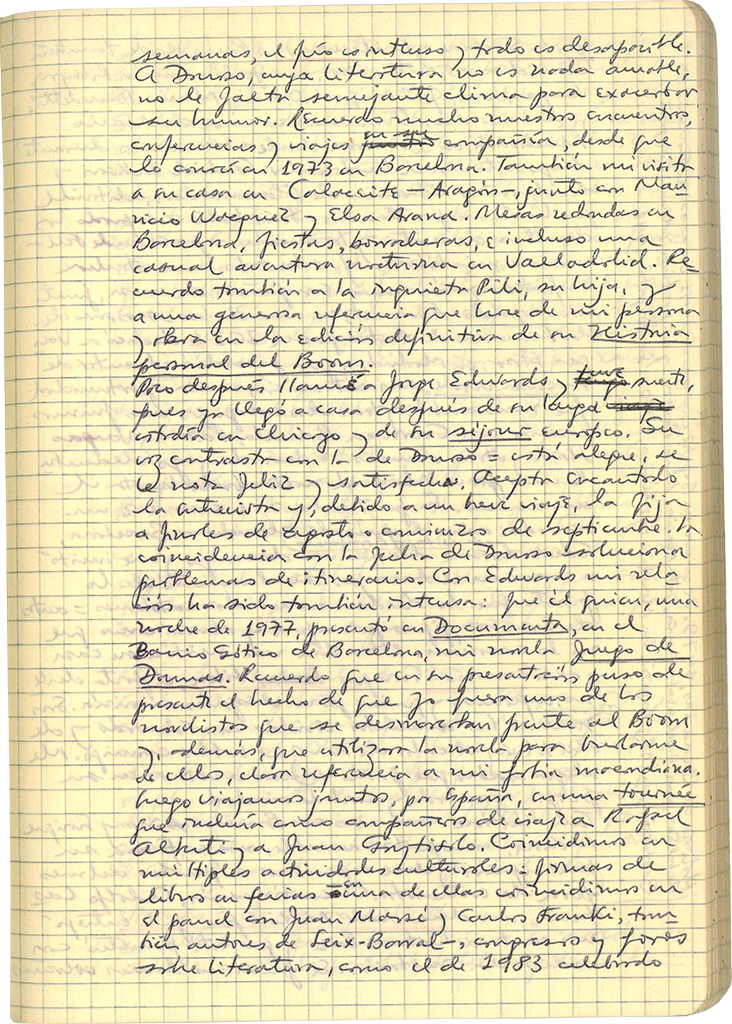 semanas, el frío es intenso y todo es desapacible.
A Donoso, cuya literatura no es nada amable,
no le falta semejante clima para exacerbar
su humor. Recuerdo mucho nuestros encuentros,
conferencias y viajes en su compañía, desde que
lo conocí en 1973 en Barcelona. También mi visita
a su casa en Calaceite – Aragón –, junto con Mau-
ricio Wacquez y Elsa Arana. Mesas redondas en
Barcelona, fiestas, borracheras, e incluso una
casual aventura nocturna en Valladolid. Re-
cuerdo también a la inquieta Pili, su hija, y
a una generosa referencia que hace de mi persona
y obra en la edición definitiva de su Historia
personal del Boom.
Poco después llamé a Jorge Edwards y tuve suerte,
pues ya llegó a casa después de su larga
estadía en Chicago y de su séjour europeo. Su
voz contrasta con la de Donoso: está alegre, se
le nota feliz y satisfecho. Acepta encantado
la entrevista y, debido a un breve viaje, la fija
a finales de agosto o comienzos de septiembre. La
coincidencia con la fecha de Donoso soluciona
problemas de itinerario. Con Edwards mi rela-
ción ha sido también intensa: fue él quien, una
noche de 1977, presentó en Documenta, en el
Barrio Gótico de Barcelona, mi novela Juego de
Damas. Recuerdo que en su presentación puso de
presente el hecho de que yo fuera uno de los
novelistas que se desmarcaban frente al Boom
y, además, que utilizara la novela para burlarme
de ellos, clara referencia a mi fobia macondiana.
Luego viajamos juntos, por España, en una tournée
que incluía como compañeros de viaje a Rafael
Alberti y a Juan Goytisolo. Coincidimos en
múltiples actividades culturales: firmas de
libros en ferias – en una de ellas coincidimos en
el panel con Juan Marsé y Carlos Franki, tam-
bién autores de Seix-Barral –, congresos y foros
sobre literatura, como el de 1983 celebrado